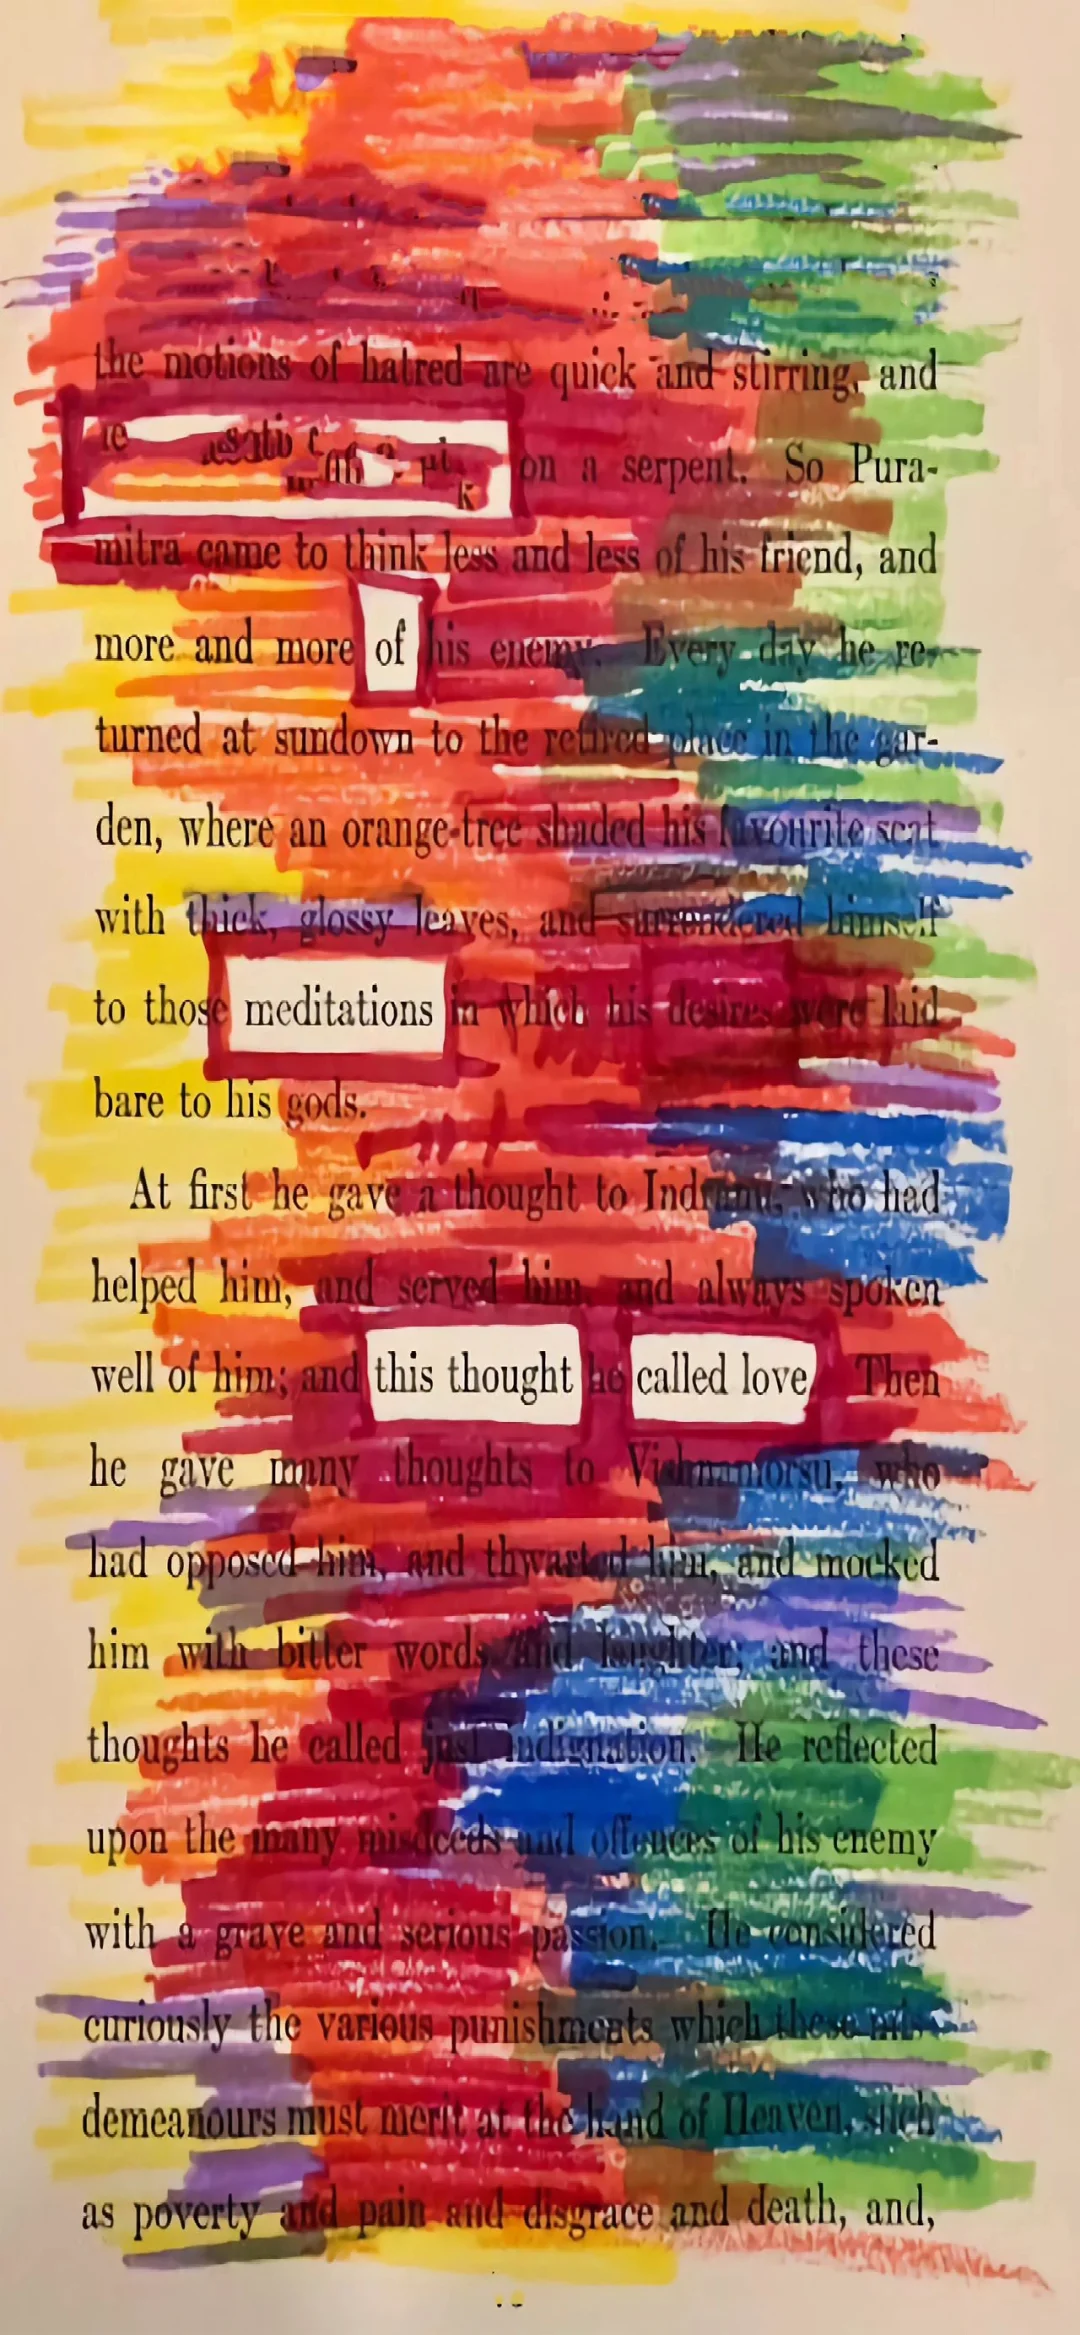 the motions of hatred are quick and stirring, and
on a serpent. So Pura-
mitra came to think less and less of his friend, and
more and more of his enemy. Every day he re-
turned at sundown to the retired place in the gar-
den, where an orange-tree shaded his favourite seat
with thick, glossy leaves, and surrendered himself
to those meditations in which his desires were laid
bare to his gods.
At first he gave a thought to who had
helped him, and served him, and always spoken
well of him; and this thought he called love. Then
he gave many thoughts to who
had opposed him, and thwarted him, and mocked
him with bitter words and laughter; and these
thoughts he called just indignation. He reflected
upon the many misdeeds and offences of his enemy
with a grave and serious passion. He considered
curiously the various punishments which these mis-
demeanours must merit at the hand of Heaven, such
as poverty and pain and disgrace and death, and,